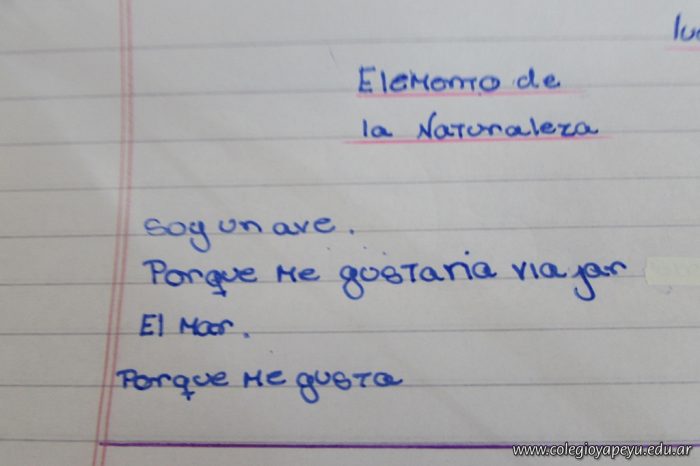 Elemento de
la Naturaleza
soy un ave.
Porque me gustaria viajar
El mar.
Porque me gusta
www.colegioyapeyu.edu.ar